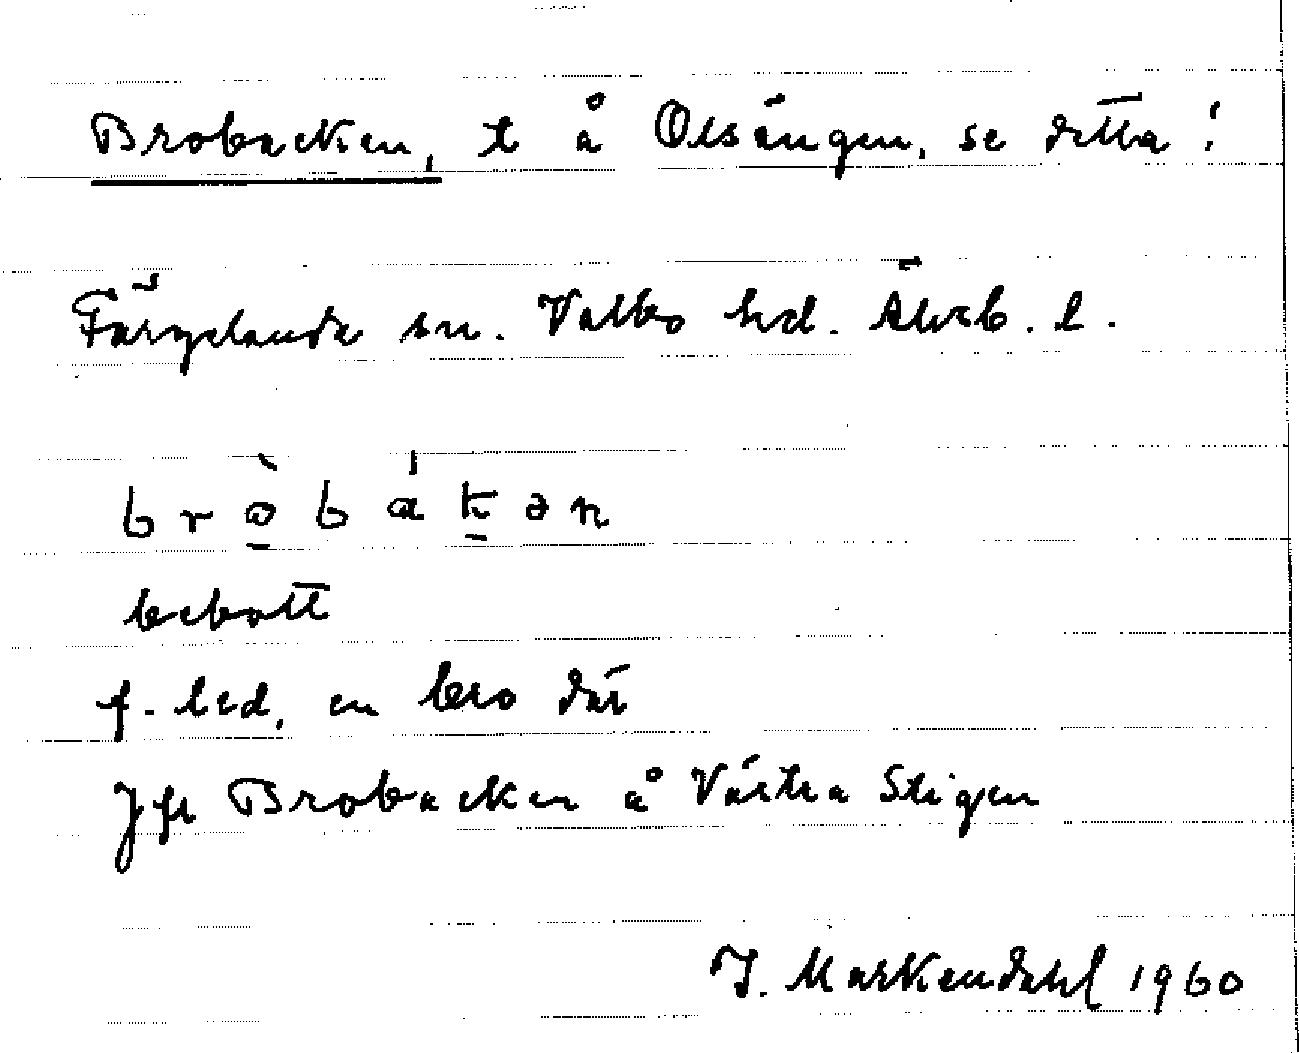 Brobacken, t å Olsängen, se detta!
Färgelanda sn. Valbo hd. Älvsb. l.
brò̱bákən
bebott
f. led, en bro där
Jfr Brobacken å Västra Stigen
I. Markendahl 1960